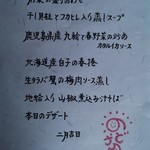 干し貝柱とフカヒレ入り蒸しスープ
鹿児島県産 九絵と春野菜の炒め
カタルイカソース
北海道産 白子の春捲
生タラバ蟹の梅肉ソース蒸し
地蛤入り 山椒煮込みつけそば
本日のデザート
二月吉日